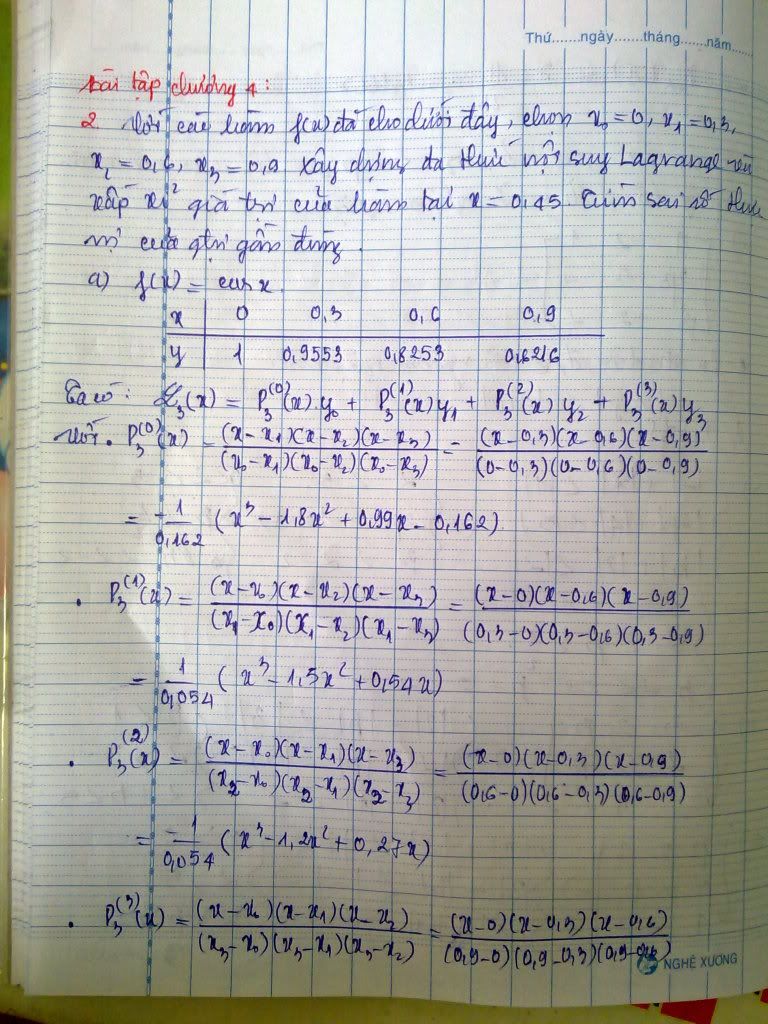 Thứ.......ngày.......tháng.......năm......
bài tập chương 4 :
2. Với các hàm f(x) đã cho dưới đây, chọn x₀ = 0, x₁ = 0,3,
x₂ = 0,6, x₃ = 0,9 xây dựng đa thức nội suy Lagrange và
xấp xỉ giá trị của hàm tại x = 0,45. Tìm sai số thực
sự của gtrị gần đúng.
a) f(x) = cos x.
x | 0 0,3 0,6 0,9
y | 1 0,9553 0,8253 0,6216
Ta có : ℒ₃(x) = P₃⁽⁰⁾(x).y₀ + P₃⁽¹⁾(x)y₁ + P₃⁽²⁾(x)y₂ + P₃⁽³⁾(x)y₃
Với • P₃⁽⁰⁾(x) = (x-x₁)(x-x₂)(x-x₃) / (x₀-x₁)(x₀-x₂)(x₀-x₃) = (x-0,3)(x-0,6)(x-0,9) / (0-0,3)(0-0,6)(0-0,9)
= -1/0,162 (x³ - 1,8x² + 0,99x - 0,162)
• P₃⁽¹⁾(x) = (x-x₀)(x-x₂)(x-x₃) / (x₁-x₀)(x₁-x₂)(x₁-x₃) = (x-0)(x-0,6)(x-0,9) / (0,3-0)(0,3-0,6)(0,3-0,9)
= 1/0,054 (x³ - 1,5x² + 0,54x)
• P₃⁽²⁾(x) = (x-x₀)(x-x₁)(x-x₃) / (x₂-x₀)(x₂-x₁)(x₂-x₃) = (x-0)(x-0,3)(x-0,9) / (0,6-0)(0,6-0,3)(0,6-0,9)
= -1/0,054 (x³ - 1,2x² + 0,27x)
• P₃⁽³⁾(x) = (x-x₀)(x-x₁)(x-x₂) / (x₃-x₀)(x₃-x₁)(x₃-x₂) = (x-0)(x-0,3)(x-0,6) / (0,9-0)(0,9-0,3)(0,9-0,6)
NGHỆ XƯƠNG